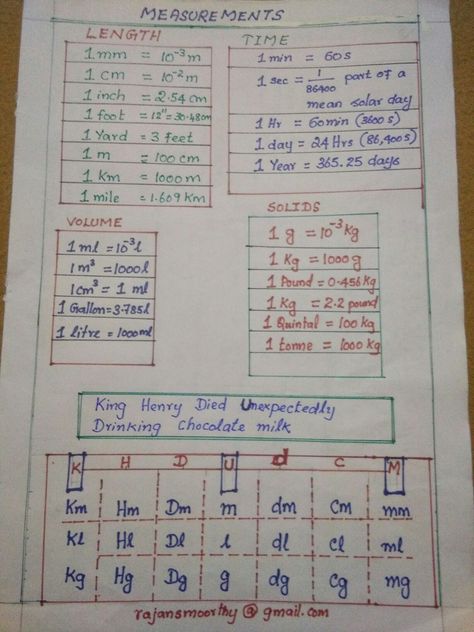 MEASUREMENTS
LENGTH
1 mm = 10⁻³ m
1 cm = 10⁻² m
1 inch = 2.54 cm
1 foot = 12" = 30.48cm
1 Yard = 3 feet
1 m = 100 cm
1 Km = 1000 m
1 mile = 1.609 Km
TIME
1 min = 60s
1 sec = 1/86400 part of a
mean solar day
1 Hr = 60min (3600s)
1 day = 24 Hrs (86,400s)
1 Year = 365.25 days
VOLUME
1 ml = 10⁻³l
1m³ = 1000l
1cm³ = 1 ml
1 Gallon = 3.785l
1 litre = 1000ml
SOLIDS
1 g = 10⁻³ Kg
1 Kg = 1000g
1 Pound = 0.456 Kg
1 Kg = 2.2 pound
1 Quintal = 100 Kg
1 tonne = 1000 Kg
King Henry Died Unexpectedly
Drinking Chocolate milk
K H D U d C M
Km Hm Dm m dm Cm mm
Kl Hl Dl l dl Cl ml
Kg Hg Dg g dg Cg mg
rajansmoorthy@gmail.com